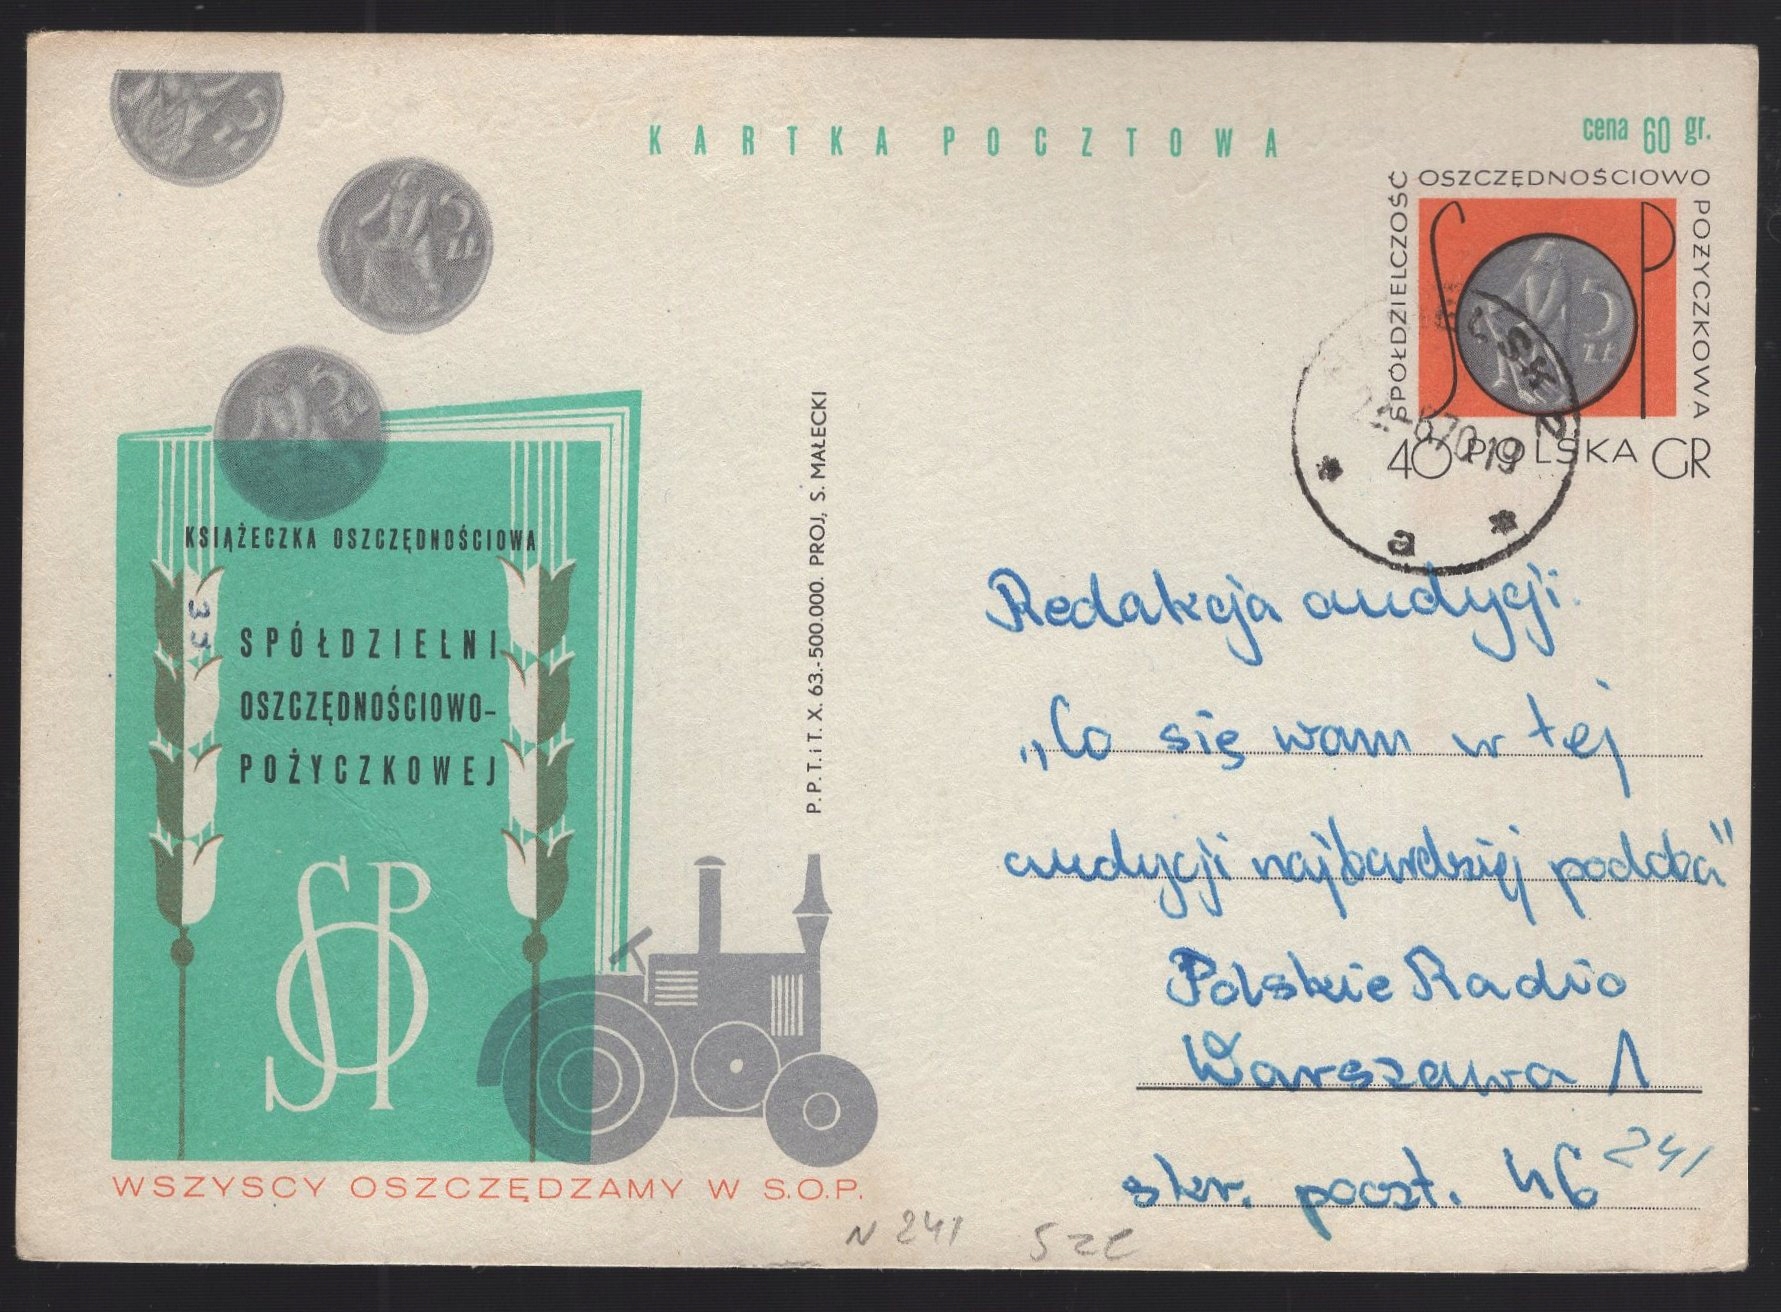 KARTKA POCZTOWA
cena 60 gr.
SPÓŁDZIELCZOŚĆ
OSZCZĘDNOŚCIOWO
POŻYCZKOWA
S P
5 ZŁ
40 POLSKA GR
a
5 ZŁ
KSIĄŻECZKA OSZCZĘDNOŚCIOWA
SPÓŁDZIELNI
OSZCZĘDNOŚCIOWO-
POŻYCZKOWEJ
SOP
WSZYSCY OSZCZĘDZAMY W S.O.P.
P.P.T.iT. X. 63.-500.000. PROJ, S. MAŁECKI
Redakcja audycji:
„Co się wam w tej
audycji najbardziej podoba"
Polskie Radio
Warszawa 1
skr. poczt. 46
241
N 241